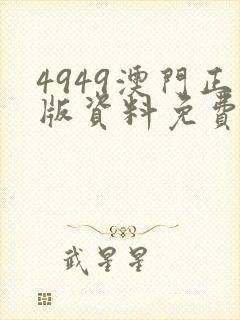 4949澳門正
版資料免費
武星星